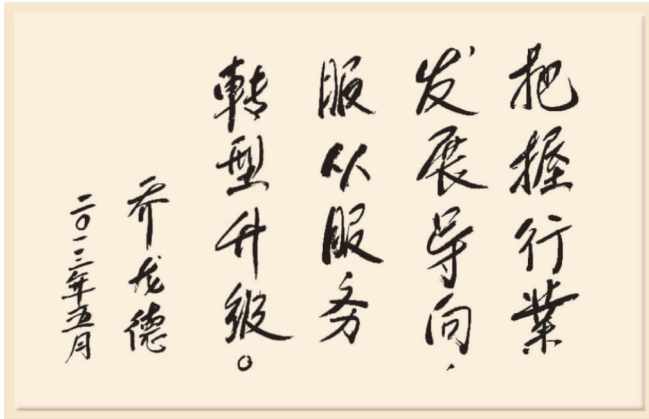 把握行業
发展导向，
服从服务
轉型升级。
乔龙德
二〇一三年五月